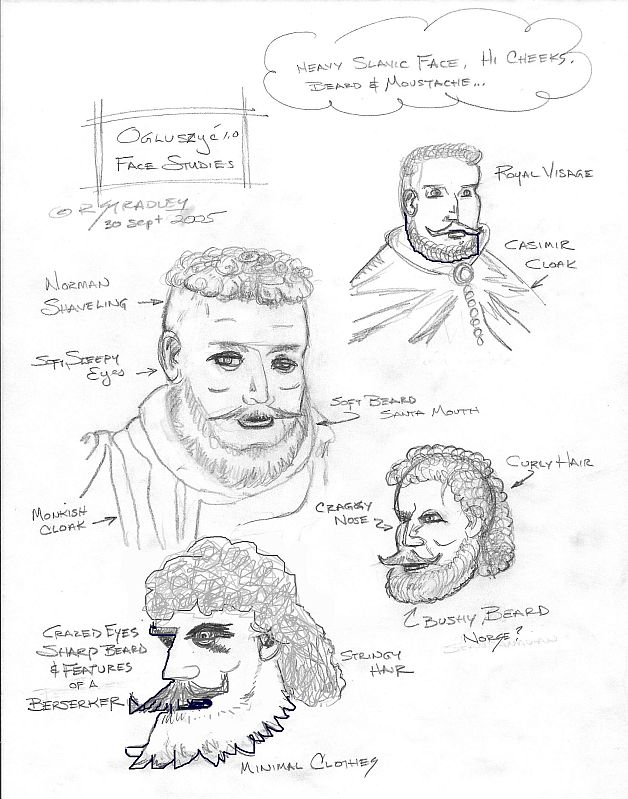 HEAVY SLAVIC FACE, HI CHEEKS.
BEARD & MOUSTACHE...
OGLUSZYĆ
FACE STUDIES
30 Sept 2025
ROYAL VISAGE
CASIMIR
CLOAK
NORMAN
SHAVELING
SOFT, SLEEPY
EYES
SOFT BEARD
SANTA MOUTH
MONKISH
CLOAK
CURLY HAIR
CRAGGY
NOSE
BUSHY BEARD
NORGE?
CRAZED EYES
SHARP BEARD
& FEATURES
OF A
BERSERKER
STRINGY
HAIR
MINIMAL CLOTHES